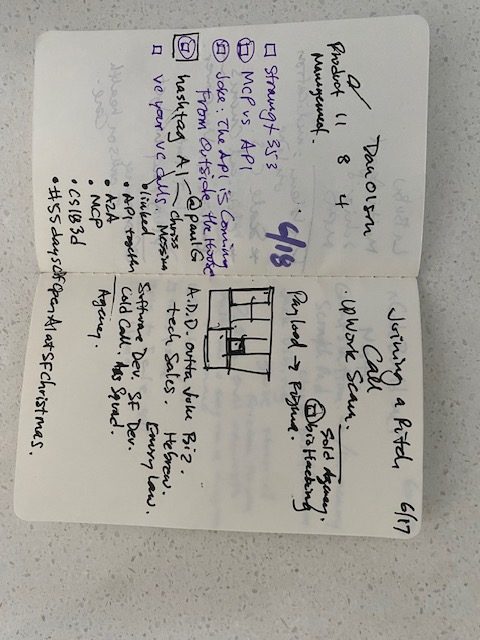 Joining a Pitch 6/17
Call
. UpWork Scam.
Sold Agency.
bio Hacking
Payload → Figma.
A.D.D. outta Juke Biz.
tech Sales. Hebrew.
Emory Law.
Software Dev. SF Dev.
Cold Call. Has Squad.
Agency.
Dan Olsen
Product 11 8 4
Management.
6/18
Straungx 353
MCP vs API
Joke: The API is Coming
From Outside the House
hashtag AI @paulG
chriss Messina
ve your VC calls.
• linked
• API together
• A2A
• MCP
• CS183d
• #55daysOfOpenAIatSFChristmas.